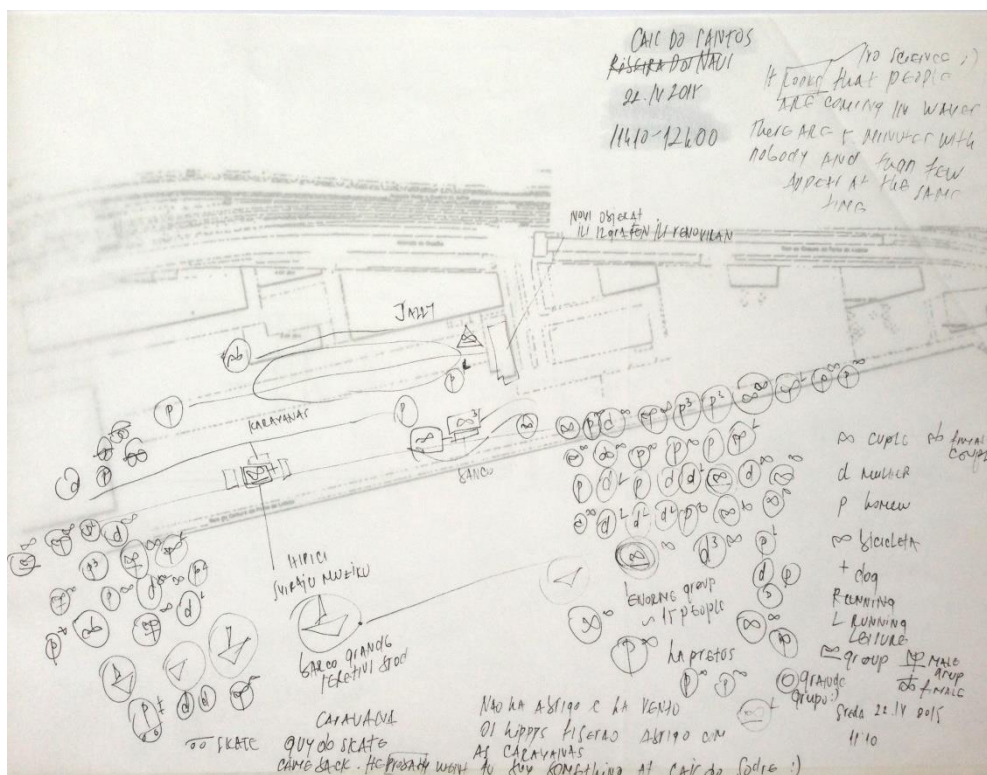 CAIC DO SANTOS
RIBEIRA DOS NAUS
22.IV 2015
11h10-12h00
NO SCIENCE :)
It looks that people
ARE COMING IN WAVES
There ARE 5 MINUTES with
nobody AND than few
Appear At the SAME
time
NOVI Objekat
ILI IZgrAđEN ILI RENOVIRAN
JAZZ
KARAVANAS
BANCO
HIPICI
SVIRAJU MUZIKU
BARCO GRANDE
ENORME group
~ 15 people
ha pretos
∞ cuple
female couple
d mulher
p homem
∞ bicicleta
+ dog
R RUNNING
L RUNNING
LEISURE
group
MALE
grup
female
grande
grupo :)
Sreda 22.IV 2015
11:10
SKATE
CARAVANA
guy do SKATE
CAME BACK. HE probably went to buy something at Cais do Sodre :)
NAO HA ABRIGO E HA VENTO
OS hippys fiserao ABRIGO COM
AS CARAVANAS